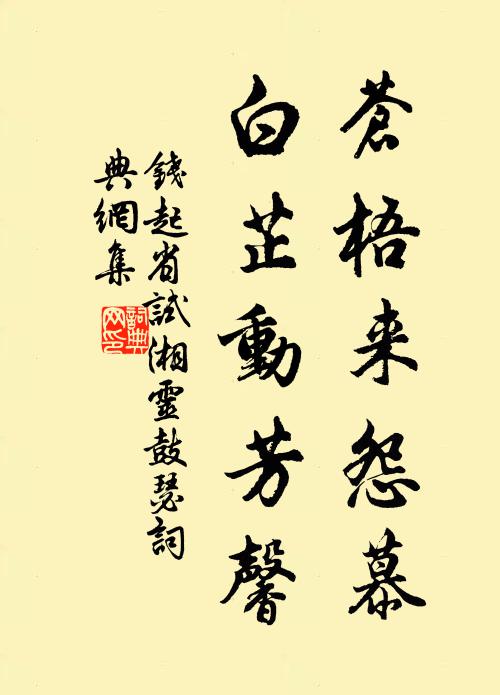 蒼梧来怨慕
白芷動芳馨
錢起省試湘靈鼓瑟詞
典網集
詞典
网印